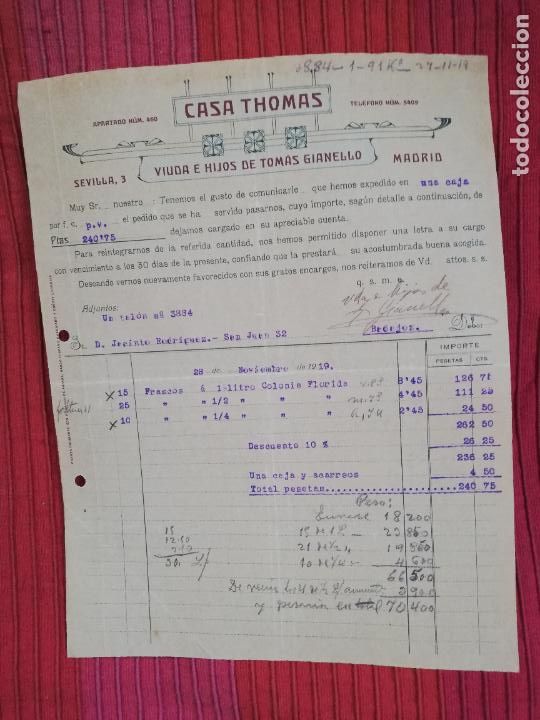 8.884 - 1 - 91 Kº 27-11-19
CASA THOMAS
APARTADO NÚM. 460
TELÉFONO NÚM. 5409
SEVILLA, 3
VIUDA E HIJOS DE TOMÁS GIANELLO
MADRID
Muy Sr. nuestro: Tenemos el gusto de comunicarle que hemos expedido en una caja
por f. c. p.v. el pedido que se ha servido pasarnos, cuyo importe, según detalle a continuación, de
Ptas 240'75 dejamos cargado en su apreciable cuenta.
Para reintegrarnos de la referida cantidad, nos hemos permitido disponer una letra a su cargo
con vencimiento a los 30 días de la presente, confiando que la prestará su acostumbrada buena acogida.
Deseando vernos nuevamente favorecidos con sus gratos encargos, nos reiteramos de Vd. attos. s. s.
q. s. m. e.
Vda e hijos de
T. Gianello
Adjuntos:
Un talón nº 3884
Sr. D. Jacinto Rodríguez.- San Juan 32
Badajoz.
Debe:
IMPORTE
PESETAS CTS.
28 de Noviembre de 1919.
X 15 Frascos á 1-litro Colonia Florida 8'45 126 75
25 " " 1/2 " " " 4'45 111 25
X 10 " " 1/4 " " " 2'45 24 50
262 50
Descuento 10 % 26 25
236 25
Una caja y acarreos 4 50
Total pesetas 240 75
Peso:
18 200
15 de 1 L - 23 850
21 de 1/2 19 850
10 de 1/4 4 600
66 500
3 900
y pesarían en total 70 400
15
12.10
2.10
todocoleccion